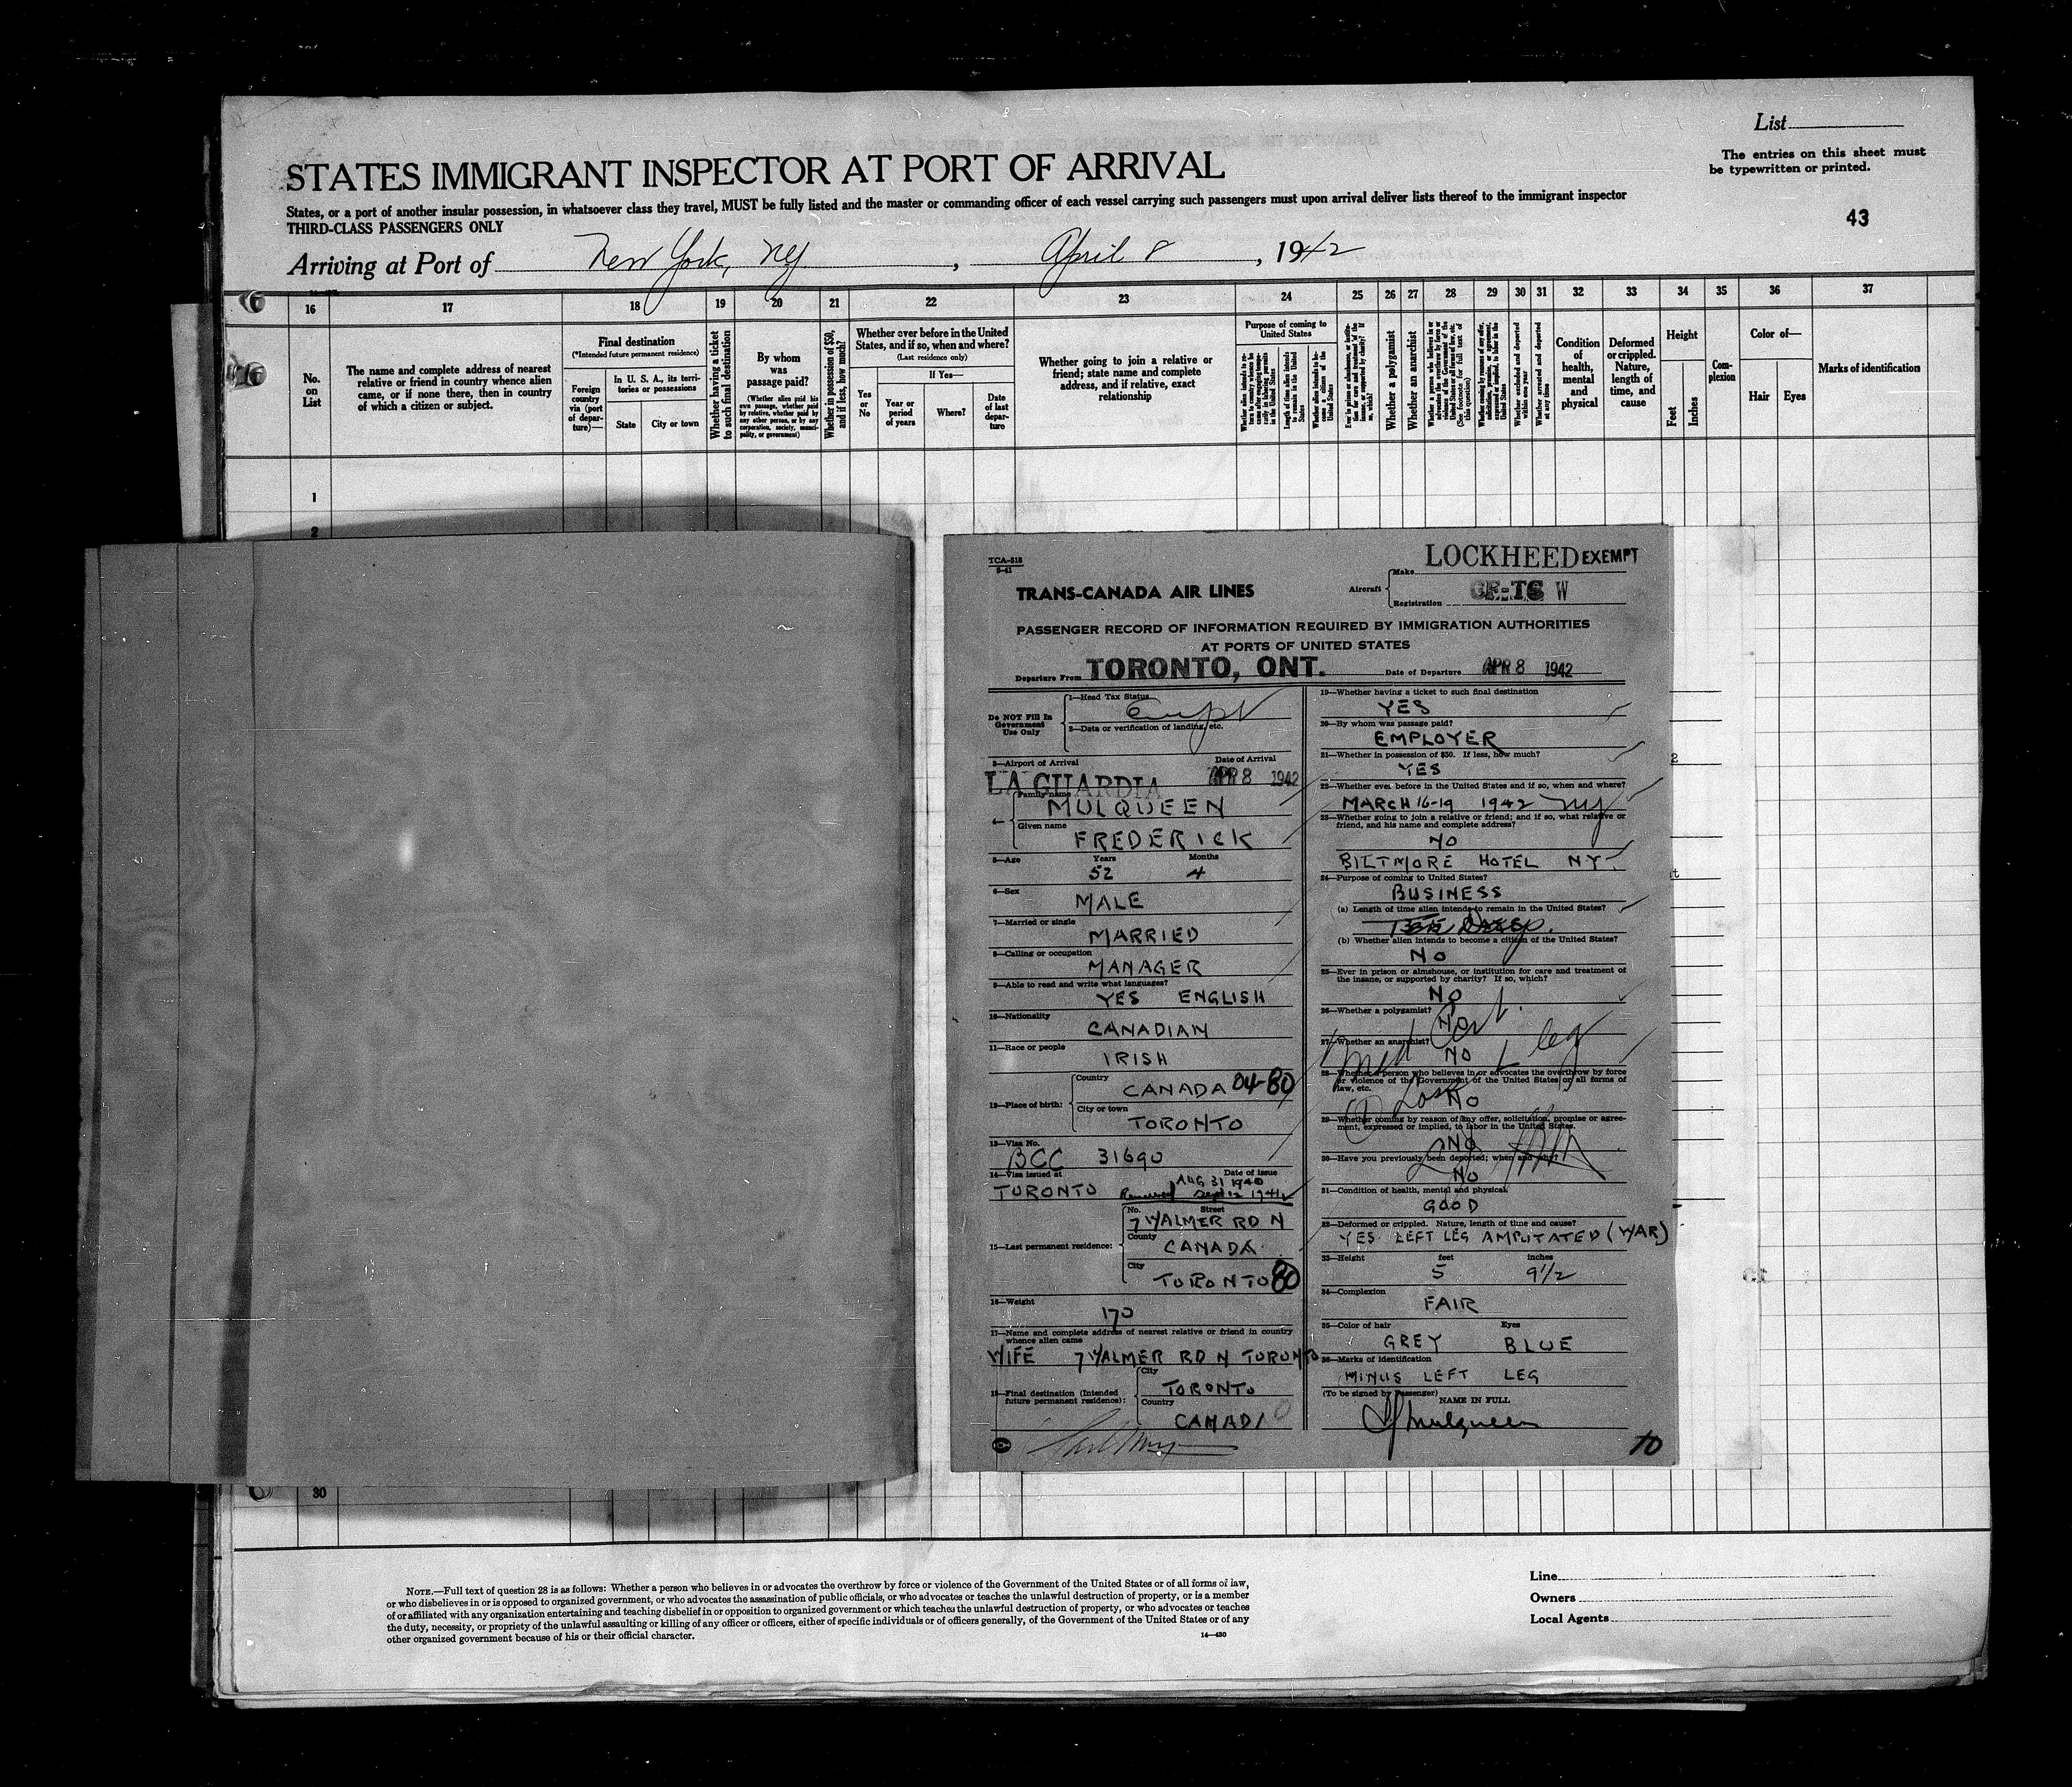 List
The entries on this sheet must
be typewritten or printed.
STATES IMMIGRANT INSPECTOR AT PORT OF ARRIVAL
States, or a port of another insular possession, in whatsoever class they travel, MUST be fully listed and the master or commanding officer of each vessel carrying such passengers must upon arrival deliver lists thereof to the immigrant inspector
THIRD-CLASS PASSENGERS ONLY
43
Arriving at Port of New York, NY, April 8, 1942
16 17 18 19 20 21 22 23 24 25 26 27 28 29 30 31 32 33 34 35 36 37
No.
on
List
The name and complete address of nearest
relative or friend in country whence alien
came, or if none there, then in country
of which a citizen or subject.
Final destination
(*Intended future permanent residence)
Foreign
country
via (port
of depar-
ture)—
In U. S. A., its terri-
tories or possessions
State City or town
Whether having a ticket
to such final destination
By whom
was
passage paid?
(Whether alien paid his
own passage, whether paid
by relative, whether paid by
any other person, or by any
corporation, society, munici-
pality, or government)
Whether in possession of $50,
and if less, how much?
Whether ever before in the United
States, and if so, when and where?
(Last residence only)
Yes
or
No
If Yes—
Year or
period
of years
Where?
Date
of last
depar-
ture
Whether going to join a relative or
friend; state name and complete
address, and if relative, exact
relationship
Purpose of coming to
United States
Length of time alien intends
to remain in the United
States
Whether a polygamist
Whether an anarchist
Condition
of
health,
mental
and
physical
Deformed
or crippled.
Nature,
length of
time, and
cause
Height
Feet
Inches
Com-
plexion
Color of—
Hair Eyes
Marks of identification
1
2
TCA-518
5-41
LOCKHEED EXEMPT
TRANS-CANADA AIR LINES
Aircraft
Make
Registration CF-TC W
PASSENGER RECORD OF INFORMATION REQUIRED BY IMMIGRATION AUTHORITIES
AT PORTS OF UNITED STATES
Departure From TORONTO, ONT. Date of Departure APR 8 1942
Do NOT Fill In
Government
Use Only
1—Head Tax Status
2—Data or verification of landing, etc.
3—Airport of Arrival Date of Arrival
LA GUARDIA APR 8 1942
Family name
MULQUEEN
Given name
FREDERICK
5—Age Years Months
52 4
6—Sex
MALE
7—Married or single
MARRIED
8—Calling or occupation
MANAGER
9—Able to read and write what languages?
YES ENGLISH
10—Nationality
CANADIAN
11—Race or people
IRISH
12—Place of birth:
Country
CANADA 04-80
City or town
TORONTO
13—Visa No.
BCC 31690
14—Visa issued at Date of issue
AUG 31 1940
TORONTO Renewed Sept 12 1941
15—Last permanent residence:
No. Street
7 WALMER RD N
County
CANADA
City
TORONTO 80
16—Weight
170
17—Name and complete address of nearest relative or friend in country
whence alien came
WIFE 7 WALMER RD N TORONTO
18—Final destination (Intended
future permanent residence):
City
TORONTO
Country
CANADA
19—Whether having a ticket to such final destination
YES
20—By whom was passage paid?
EMPLOYER
21—Whether in possession of $50. If less, how much?
YES
22—Whether ever before in the United States and if so, when and where?
MARCH 16-19 1942 NY
23—Whether going to join a relative or friend; and if so, what relative or
friend, and his name and complete address?
NO
BILTMORE HOTEL NY.
24—Purpose of coming to United States?
BUSINESS
(a) Length of time alien intends to remain in the United States?
(b) Whether alien intends to become a citizen of the United States?
NO
25—Ever in prison or almshouse, or institution for care and treatment of
the insane, or supported by charity? If so, which?
NO
26—Whether a polygamist?
NO
27—Whether an anarchist?
NO
Med Cert. L leg
28—Whether a person who believes in or advocates the overthrow by force
or violence of the Government of the United States or all forms of
law, etc.
NO
Loss
29—Whether coming by reason of any offer, solicitation, promise or agree-
ment, expressed or implied, to labor in the United States.
NO
30—Have you previously been deported; when and why?
NO
31—Condition of health, mental and physical
GOOD
32—Deformed or crippled. Nature, length of time and cause?
YES LEFT LEG AMPUTATED (WAR)
33—Height feet inches
5 9½
34—Complexion
FAIR
35—Color of hair Eyes
GREY BLUE
36—Marks of identification
MINUS LEFT LEG
(To be signed by Passenger)
NAME IN FULL
Mulqueen
10
30
NOTE.—Full text of question 28 is as follows: Whether a person who believes in or advocates the overthrow by force or violence of the Government of the United States or of all forms of law,
or who disbelieves in or is opposed to organized government, or who advocates the assassination of public officials, or who advocates or teaches the unlawful destruction of property, or is a member
of or affiliated with any organization entertaining and teaching disbelief in or opposition to organized government or which teaches the unlawful destruction of property, or who advocates or teaches
the duty, necessity, or propriety of the unlawful assaulting or killing of any officer or officers, either of specific individuals or of officers generally, of the Government of the United States or of any
other organized government because of his or their official character.
14—430
Line
Owners
Local Agents